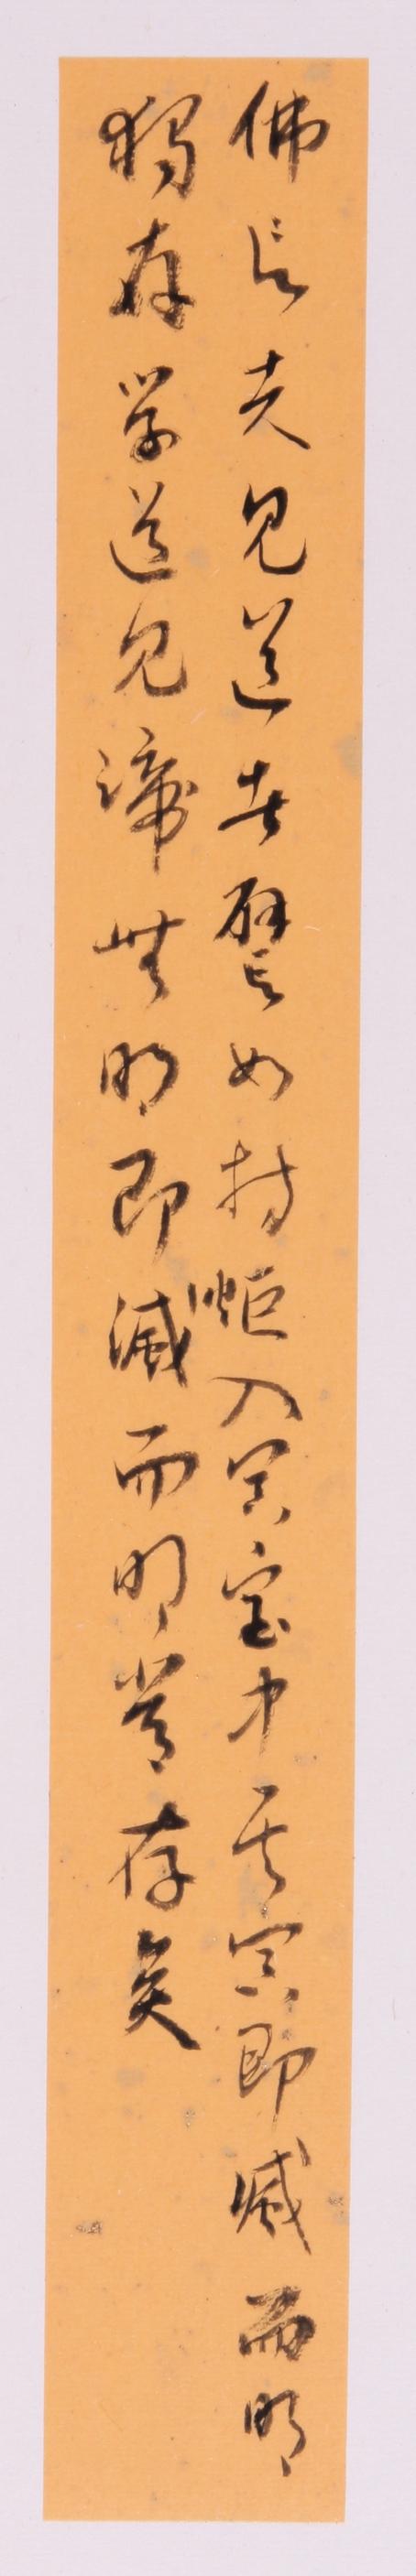 佛言夫见道者譬如持炬入冥室中其冥即滅而明
獨存学道见諦無明即滅而明常存矣